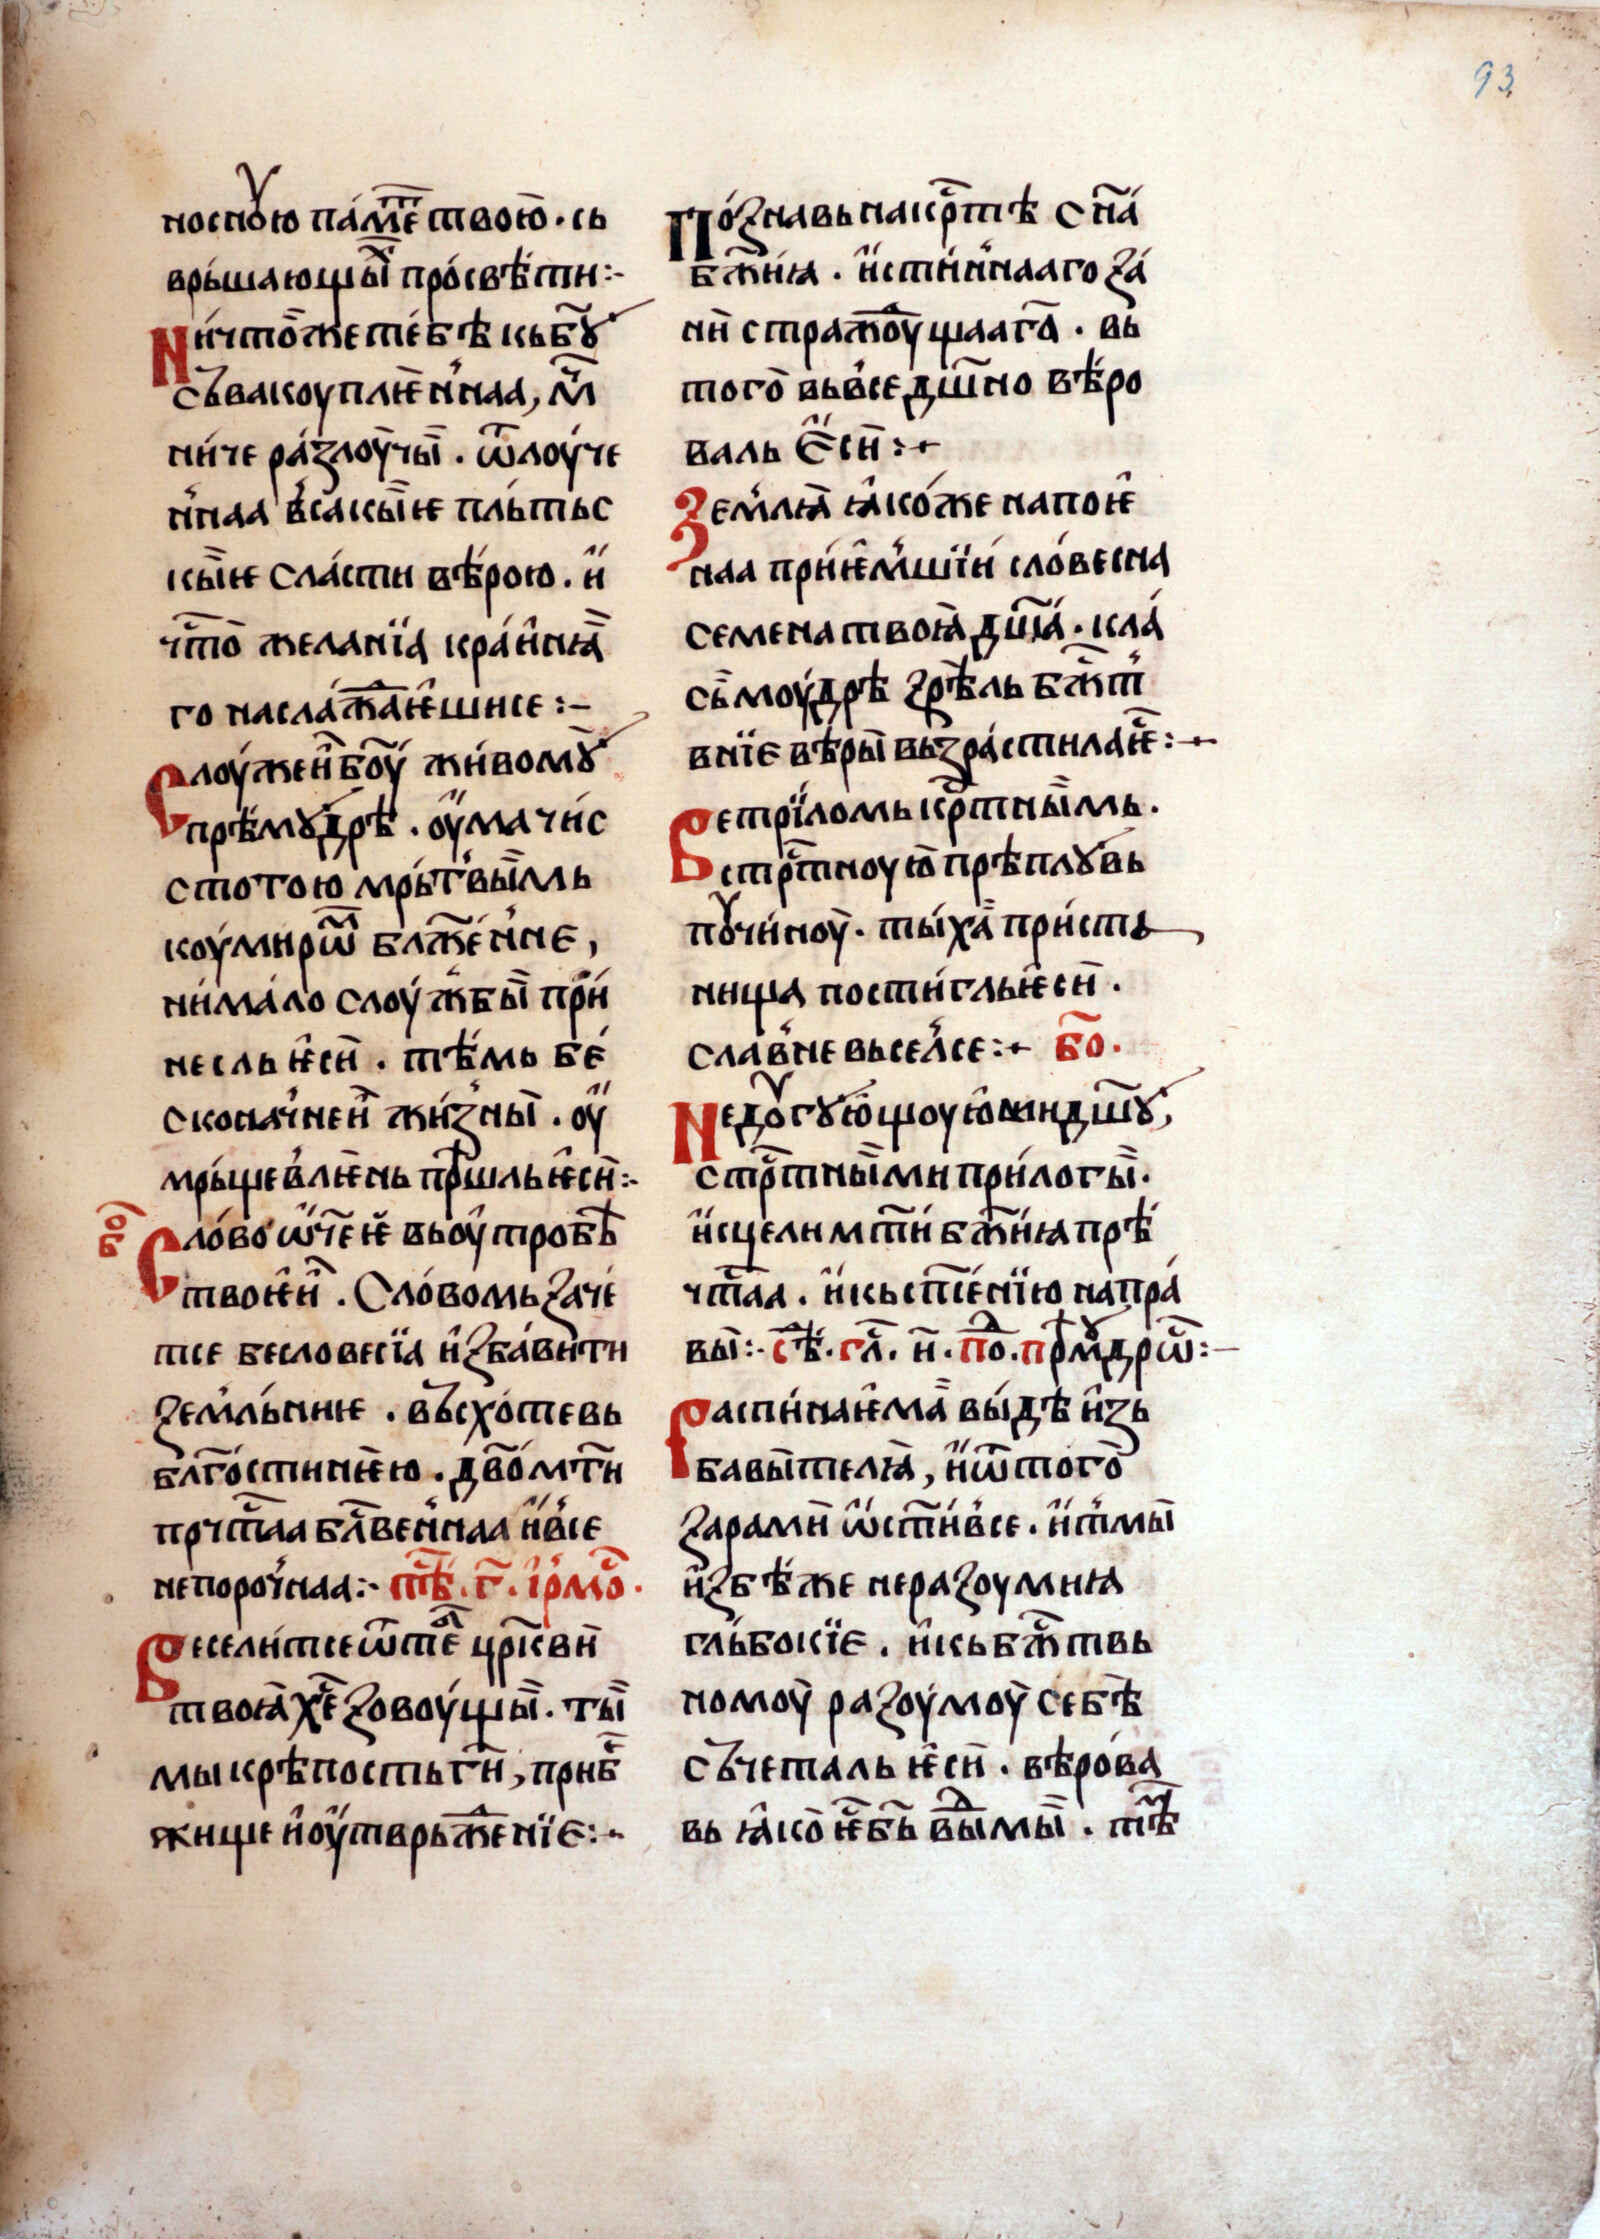 93
носноую па́ме҃т твою̀· сь
врь́шающы́х просвѣ́ти:-
Ни́что̀же те́бѣ кь бо҃у
съвакоуплѥн'наа, мч҃
ни́че ра́злоу́чы̀. ѿлоу́че
н'наа в'сакы̏ѥ пль́тьс
кы̏ѥ сла́сти вѣ́рою. и҆
что̀ желанїа кра́и҆нꙗ̏
го насла́ждае҆шисе:-
Слоу́жен҃ бо҃у жи́вомꙋ̀
прѣ́мꙋдрѣ. оу҆ма чи́с
стотою мрь́твы̏мь
коумирѡм блаже́н'не,
ни́ма́ло слоу́жбы̀ при́
несль ѥ҆сѝ. тѣ́мь бе́
сконач'неи жи́зны̀. оу҆
мрь́ще влѥ́нь пришль ѥ҆сѝ:-
бо҃
Сло́во ѿч҃еѥ вь оу҆тробѣ̀
твоѥ҆и. Сло́вомь заче́
тсе бесловесїа и҆зба́вити
зем'ль́ниѥ. въсхо́тевь
бл҃го́стинѥ҆ю. дв҃о мт҃и
прч҃таа бл҃вен'наа и҆ в'се
непороч'наа:- пѣ҃. г҃. і҆рмо҃.
Весели́тсе ѿ тебѐ цр҃кви
твоꙗ̀ х҃е зовоу́щы̏. ты̏
мы крѣ́пость г҃и, прибѣ̀
жище и҆ оу҆тврьже́нїе:-
По́знавь на кр҃тѣ с҃на́
бж҃иꙗ. и҆стин'нааго за́
ны̀ стражоущааго̀. вь
того̀ вь в'се дш҃но вѣ́ро
валь е҆сѝ:-
Зем'лꙗ̀ ꙗ҆ко́же напоѥ҆
наа при́ѥм'шїи словесна
семена твоꙗ̀ дш҃а́. кла́
сь̏ моу́дрѣ зрѣ́ль бж҃т
внїе вѣ́ры̀ вьзра́стила ѥ҃:-
Ветрїломь кр҃тны̏мь.
стрⷭ҇тноую прѣплꙋ́вь
поучи́ноу̀. ты́ха̏ при́стъ
нища пости́гль ѥ҆сѝ.
слав'не вьсел'се:- бо҃.
Недоугꙋю҆щоую ми дш҃ꙋ,
стр҃тны̏ми при́логы̀.
и҆сцели мт҃и бж҃иꙗ прѣ́
чтⷭ҇аа. и҆ кь сп҃се́нїю напра́
вы̀:- сѣ҃. гл҃. и҃. по҃. прѣмꙋдрѡ:-
Распи́наѥ҆ма̏ вы́дѣ и҆зь
бавы̀телꙗ̀, и҆ ѿ того̀
зарами ѡ҆ст҃и́в'се. и҆ т'мы̀
и҆збѣ́же неразоу́мниꙗ
гль́бокїе. и҆ кь бж҃твь
номоу̀ разоу́моу̀ се́бѣ
съчеталь ѥ҆сѝ. вѣро́ва
вь ꙗ҆ко̀ ѥ҃ б҃ь вы̏дмы̏. тѣм